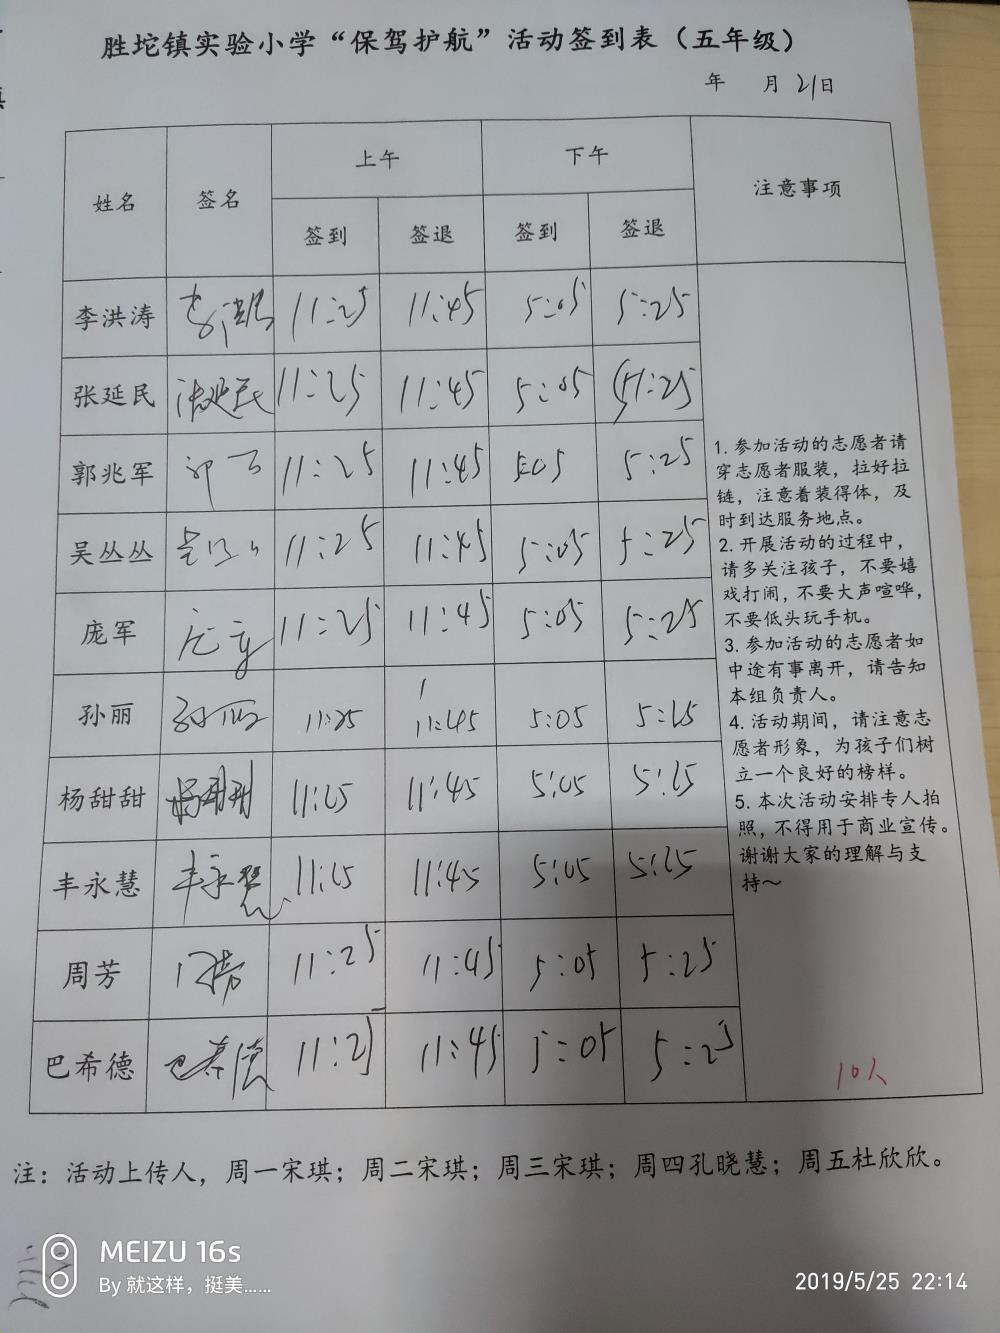 胜坨镇实验小学“保驾护航”活动签到表（五年级）
年 月 21日
姓名 签名 上午 下午 注意事项
签到 签退 签到 签退
李洪涛 李洪涛 11:25 11:45 5:05 5:25
张延民 张延民 11:25 11:45 5:05 5:25
郭兆军 11:25 11:45 5:05 5:25
吴丛丛 11:25 11:45 5:05 5:25
庞军 11:25 11:45 5:05 5:25
孙丽 孙丽 11:25 11:45 5:05 5:25
杨甜甜 杨甜甜 11:25 11:45 5:05 5:25
丰永慧 丰永慧 11:25 11:45 5:05 5:25
周芳 周芳 11:25 11:45 5:05 5:25
巴希德 巴希德 11:25 11:45 5:05 5:25
1. 参加活动的志愿者请
穿志愿者服装，拉好拉
链，注意着装得体，及
时到达服务地点。
2. 开展活动的过程中，
请多关注孩子，不要嬉
戏打闹，不要大声喧哗，
不要低头玩手机。
3. 参加活动的志愿者如
中途有事离开，请告知
本组负责人。
4. 活动期间，请注意志
愿者形象，为孩子们树
立一个良好的榜样。
5. 本次活动安排专人拍
照，不得用于商业宣传。
谢谢大家的理解与支
持～
10人
注：活动上传人，周一宋琪；周二宋琪；周三宋琪；周四孔晓慧；周五杜欣欣。
MEIZU 16s
By 就这样，挺美......
2019/5/25 22:14